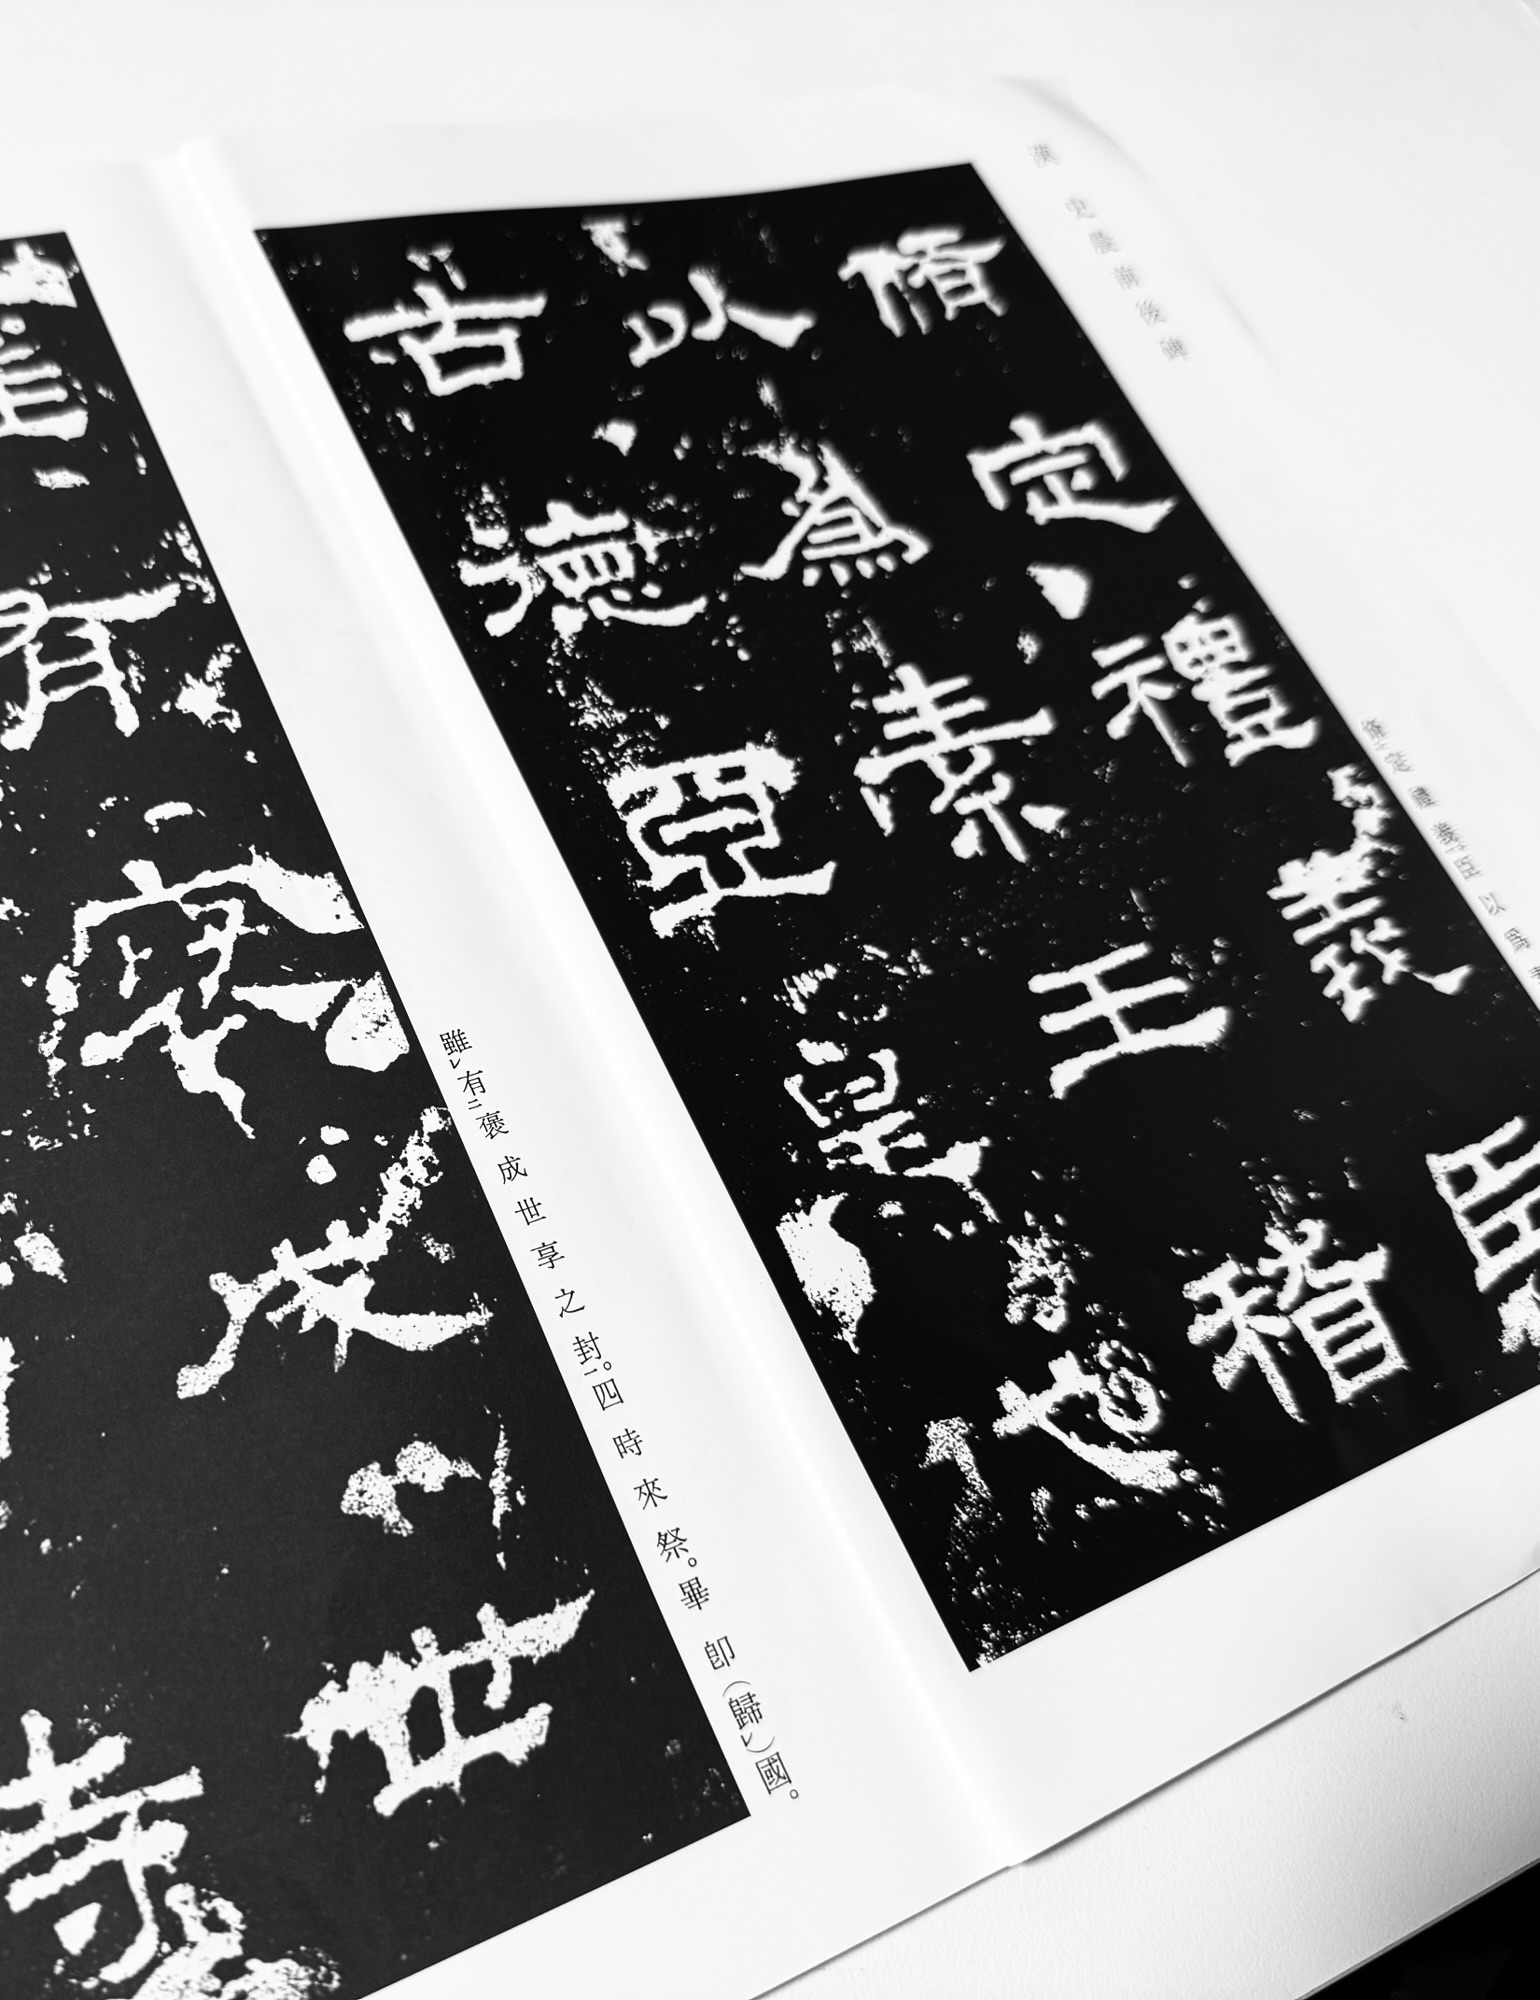 漢史晨前後碑
脩定禮義臣
以爲素王稽
古德亞皇代
脩定禮義臣以爲
有褒成世
寺
雖レ有二褒成世享之封一。四時來祭。畢卽(歸レ)國。